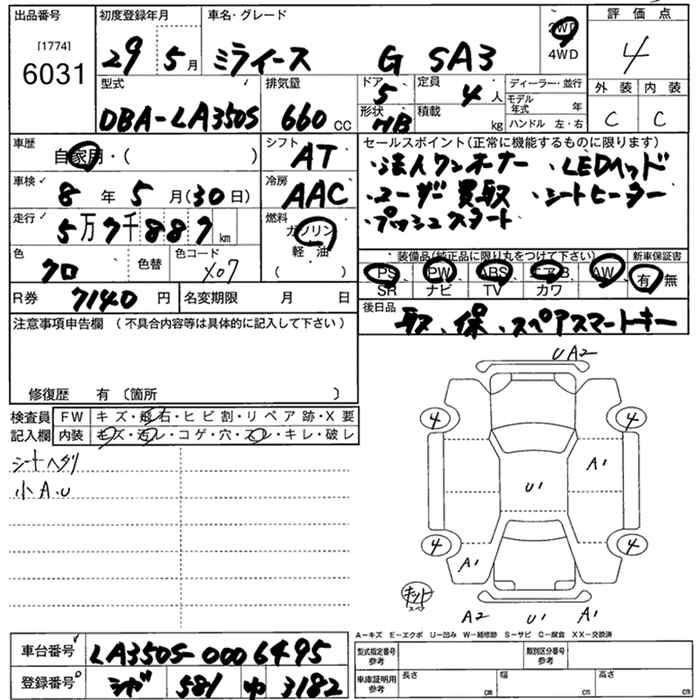 出品番号 初度登録年月 車名・グレード 2WD 4WD 評価点
[1774]
6031
29 5月 ミライース G SA3 4
型式 排気量 ドア 5 形状 HB 定員 4人 積載 kg ディーラー・並行 モデル年式 年 ハンドル 左・右 外装 C 内装 C
DBA-LA350S 660cc
車歴 自家用・( ) シフト AT
車検 8年5月(30日) 冷房 AAC
走行 5万7千887km 燃料 ガソリン 軽・油 ( )
色 クロ 色替 色コード X07
R券 7140円 名変期限 月 日
セールスポイント(正常に機能するものに限ります)
・法人ワンオーナー ・LEDヘッド
・ユーザー買取 ・シートヒーター
・プッシュスタート
装備品(純正品に限り丸をつけて下さい) 新車保証書
PS PW ABS エアB AW 有・無
SR ナビ TV カワ
後日品 取、保、スペアスマートキー
注意事項申告欄(不具合内容等は具体的に記入して下さい)
修復歴 有〔箇所 〕
検査員記入欄 FW キズ・飛石・ヒビ割・リペア跡・X要
内装 キズ・汚レ・コゲ・穴・スレ・キレ・破レ
シートヘタリ
小A.U
UA2
4 4
A1
U1
4 4
A1
キット スペ
A2 U1 A1
A−キズ E−エクボ U−凹み W−補修跡 S−サビ C−腐食 XX−交換済
車台番号 LA350S-0006495
登録番号 581 3182
型式指定番号 参考 類別区分番号 参考
車庫証明用 参考 長さ cm 幅 cm 高さ cm